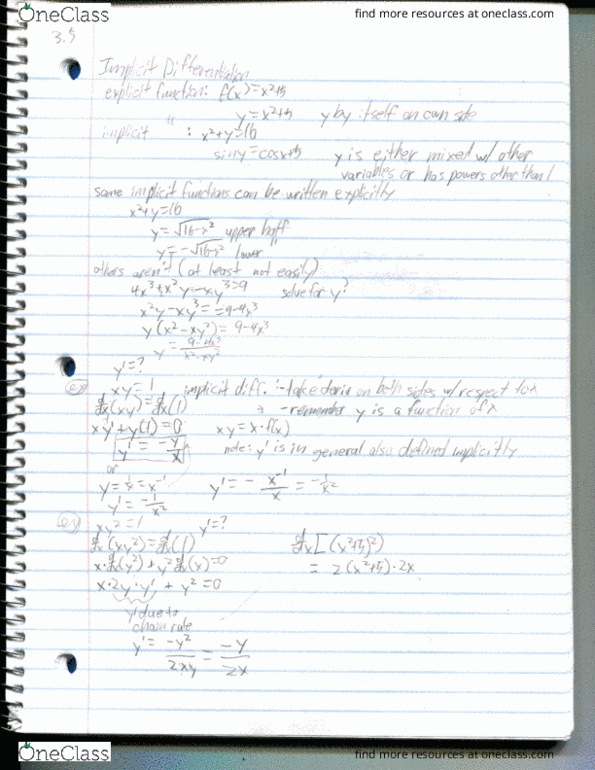 OneClass
find more resources at oneclass.com
3.5
Implicit Differentiation
explicit function: f(x)=x²+5
y=x²+5 y by itself on own side
implicit " : x²+y=16
siny=cosx+5 y is either mixed w/ other
variables or has powers other than 1
some implicit functions can be written explicitly
x²+y=16
y=√16-x² upper half
y=-√16-x² lower "
others aren't (at least not easily)
4x³+x²y-xy³=9 solve for y?
x²y-xy³=9-4x³
y(x²-xy²)=9-4x³
y=9-4x³/x²-xy²
y'=?
ex xy=1 implicit diff. :-take deriv on both sides w/respect to x
d/dx(xy)=d/dx(1) -remember y is a function of x
xy'+y(1)=0 xy=x·f(x)
y'=-y/x note: y' is in general also defined implicitly
or
y=1/x=x⁻¹ y'=-x⁻¹/x=-1/x²
y'=-1/x²
ex xy²=1 y'=?
d/dx(xy²)=d/dx(1) d/dx[(x²+5)²]
x·d/dx(y²)+y²d/dx(x)=0 =2(x²+5)·2x
x·2y·y'+y²=0
y' due to
chain rule
y'=-y²/2xy=-y/2x
OneClass
find more resources at oneclass.com